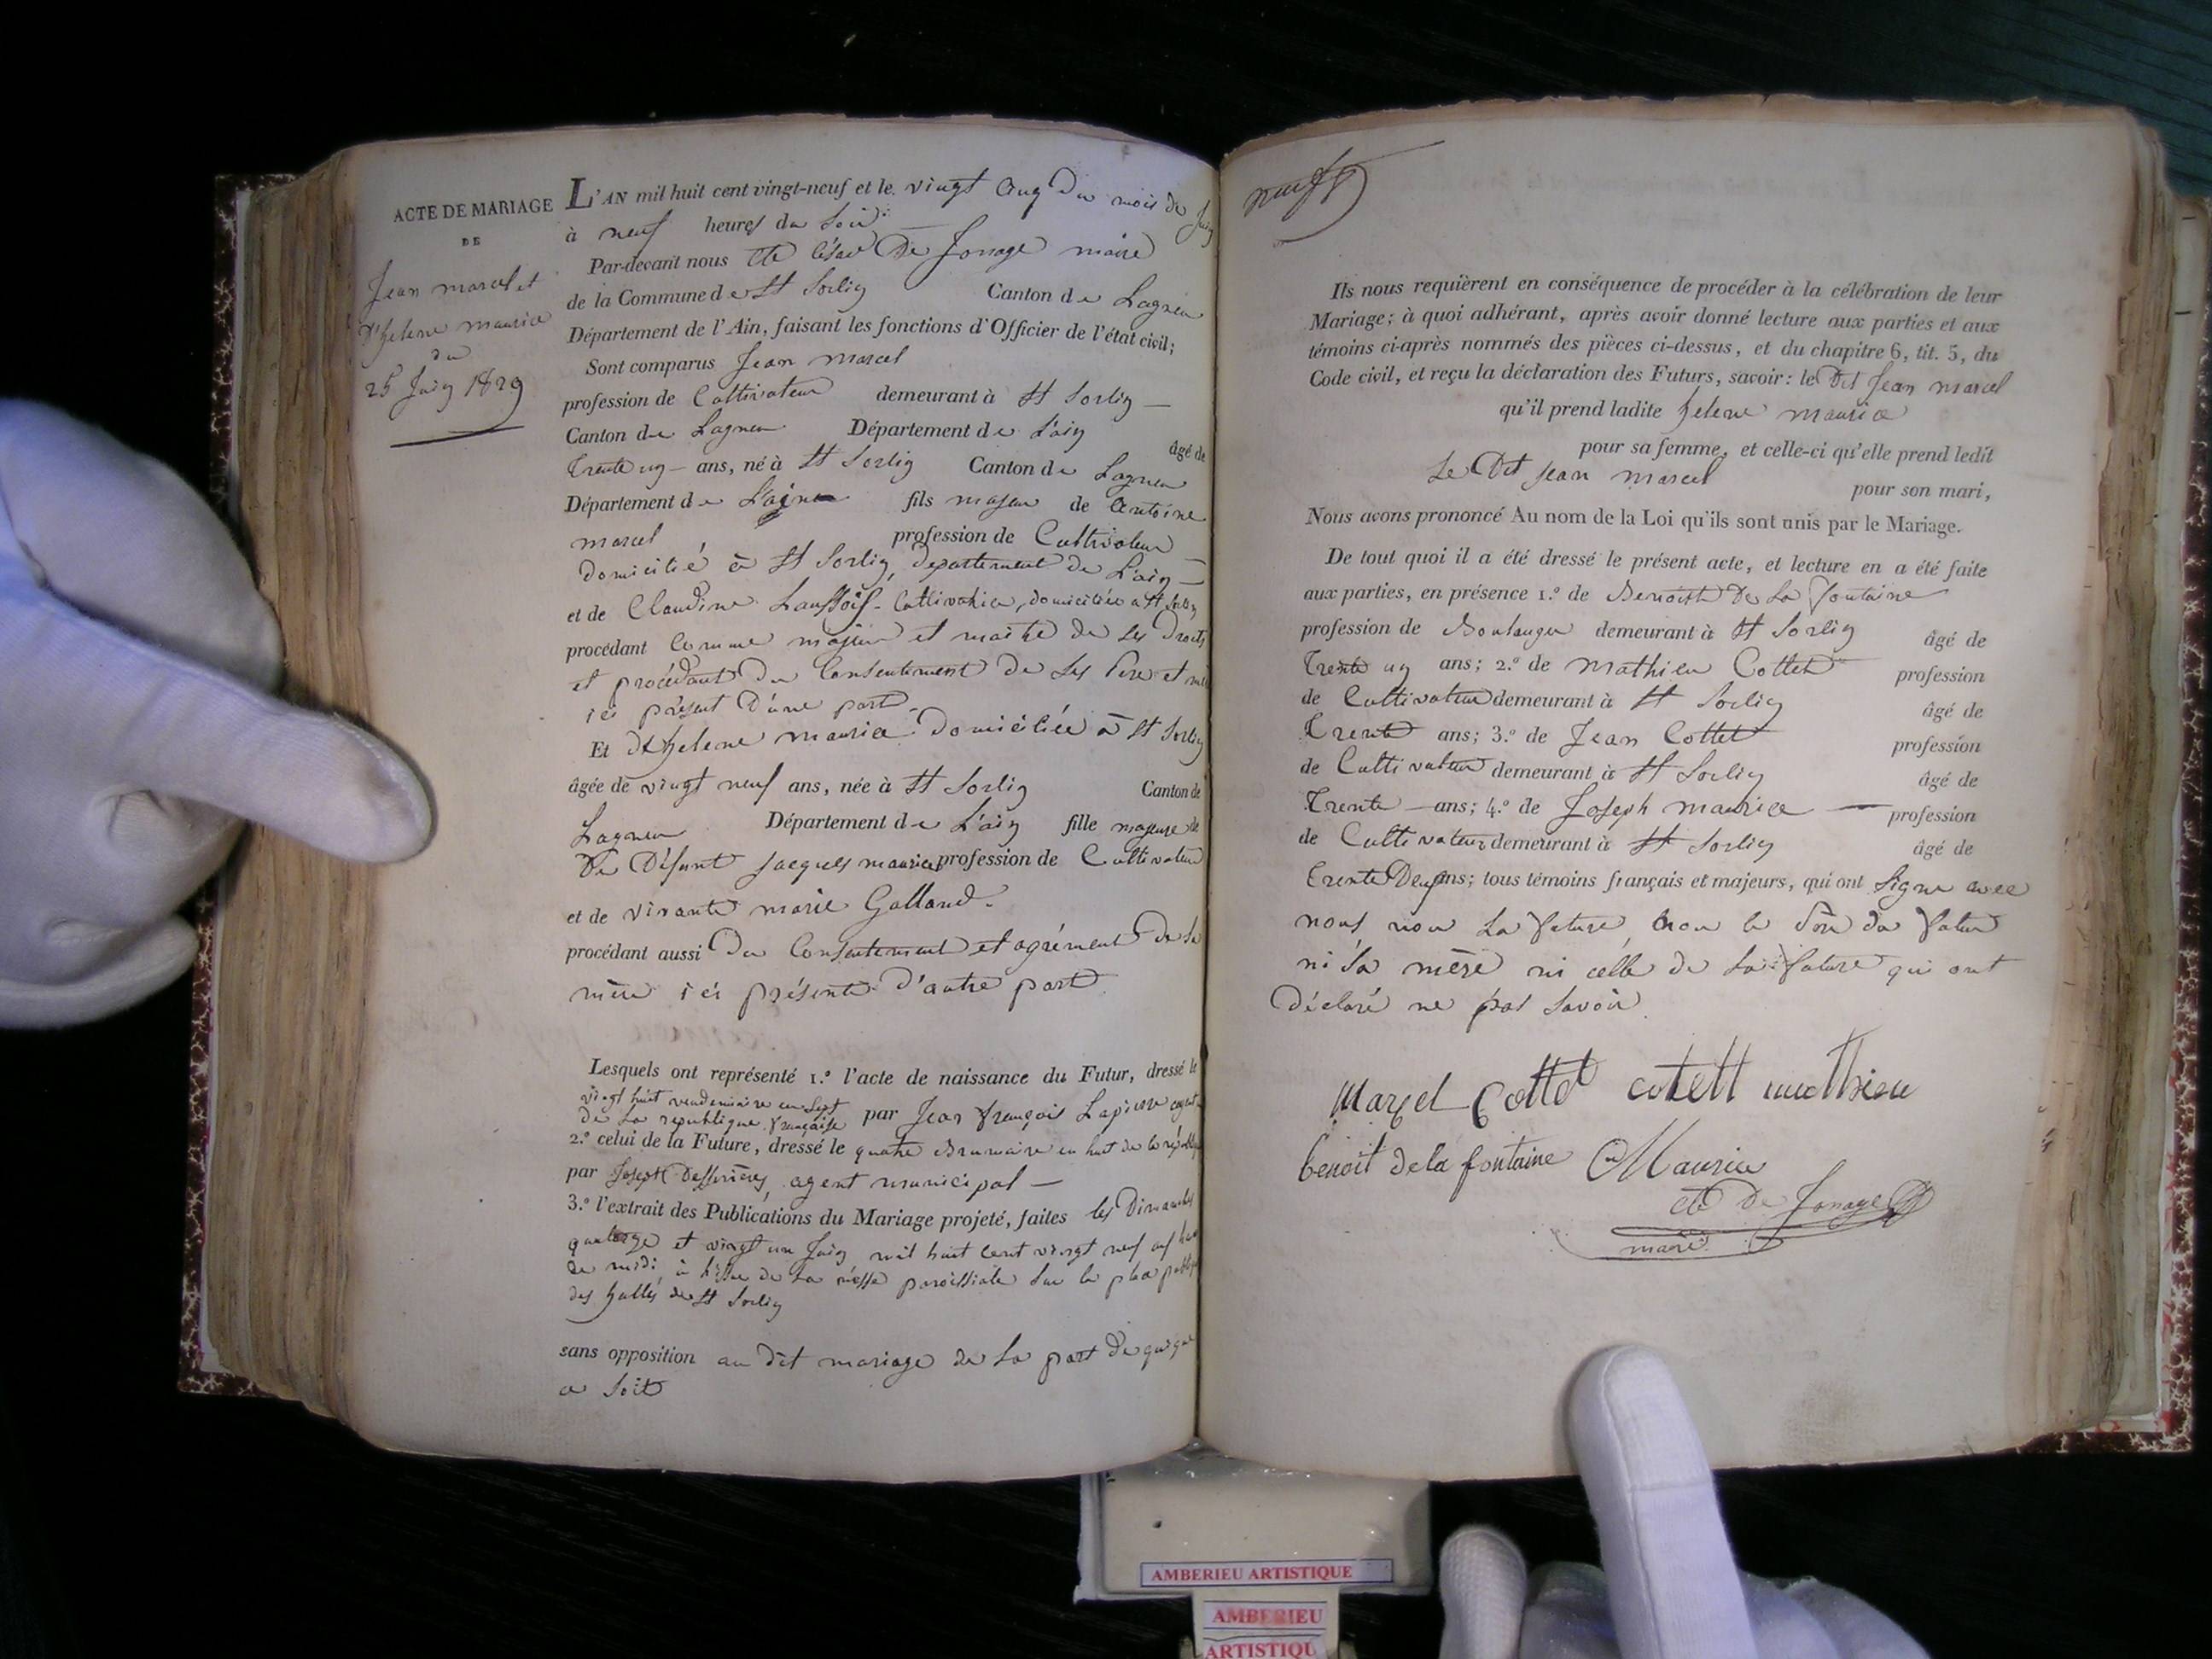 ACTE DE MARIAGE
DE
Jean marcel et
d'helene maurice
du
25 Juin 1829
L'AN mil huit cent vingt-neuf et le vingt cinq du mois de Juin
à neuf heures du soir
Par-devant nous cte César De Jonage maire
de la Commune de St Sorlin Canton de Lagneu
Département de l'Ain, faisant les fonctions d'Officier de l'état civil;
Sont comparus Jean marcel
profession de Cultivateur demeurant à St Sorlin —
Canton de Lagneu Département de L'ain
âgé de
Trente un — ans, né à St Sorlin Canton de Lagneu
Département de L'ain fils majeur de Antoine
marcel profession de Cultivateur —
domicilié à St Sorlin, departement de L'ain —
et de Claudine cultivatrice, domiciliée a St Sorlin
procédant comme majeur et maitre de ses Droits
et procédant du Consentement de ses Pere et mere
ici présent D'une part.
Et d'helene maurice Domiciliée à St Sorlin
âgée de vingt neuf ans, née à St Sorlin Canton de
Lagneu Département de L'ain fille majeure de
De Défunt Jacques maurice profession de Cultivateur
et de vivante marie Galland.
procédant aussi du Consentement et agrément de sa
mère ici présente D'autre part
Lesquels ont représenté 1.º l'acte de naissance du Futur, dressé le
vingt huit vendemiaire an sept
de La republique française par Jean françois Lapierre agent
2.º celui de la Future, dressé le quatre Brumaire an huit de la république
par Joseph agent municipal —
3.º l'extrait des Publications du Mariage projeté, faites les Dimanches
quatorze et vingt un Juin mil huit cent vingt neuf
de midi à L'issue de La messe paroissiale sur la place publique
des halles de St Sorlin
sans opposition au dit mariage de La part de qui que
ce soit
neuf
Ils nous requièrent en conséquence de procéder à la célébration de leur
Mariage; à quoi adhérant, après avoir donné lecture aux parties et aux
témoins ci-après nommés des pièces ci-dessus, et du chapitre 6, tit. 5, du
Code civil, et reçu la déclaration des Futurs, savoir: le Dit Jean marcel
qu'il prend ladite helene maurice
pour sa femme, et celle-ci qu'elle prend ledit
Le Dit Jean marcel pour son mari,
Nous avons prononcé Au nom de la Loi qu'ils sont unis par le Mariage.
De tout quoi il a été dressé le présent acte, et lecture en a été faite
aux parties, en présence 1.º de Benoist De La fontaine
profession de Boulanger demeurant à St Sorlin âgé de
Trente un ans; 2.º de Mathieu Cottet profession
de Cultivateur demeurant à St Sorlin âgé de
Trente ans; 3.º de Jean Cottet profession
de Cultivateur demeurant à St Sorlin âgé de
Trente — ans; 4.º de Joseph maurice — profession
de Cultivateur demeurant à St Sorlin âgé de
Trente Deux ans; tous témoins français et majeurs, qui ont signe avec
nous non La future, non le du futur
ni sa mère ni celle de La future qui ont
Déclaré ne pas savoir.
Marcel Cottet cotett matthieu
benoit de la fontaine Maurice
cte De Jonage
maire
AMBERIEU ARTISTIQUE
AMBERIEU
ARTISTIQU